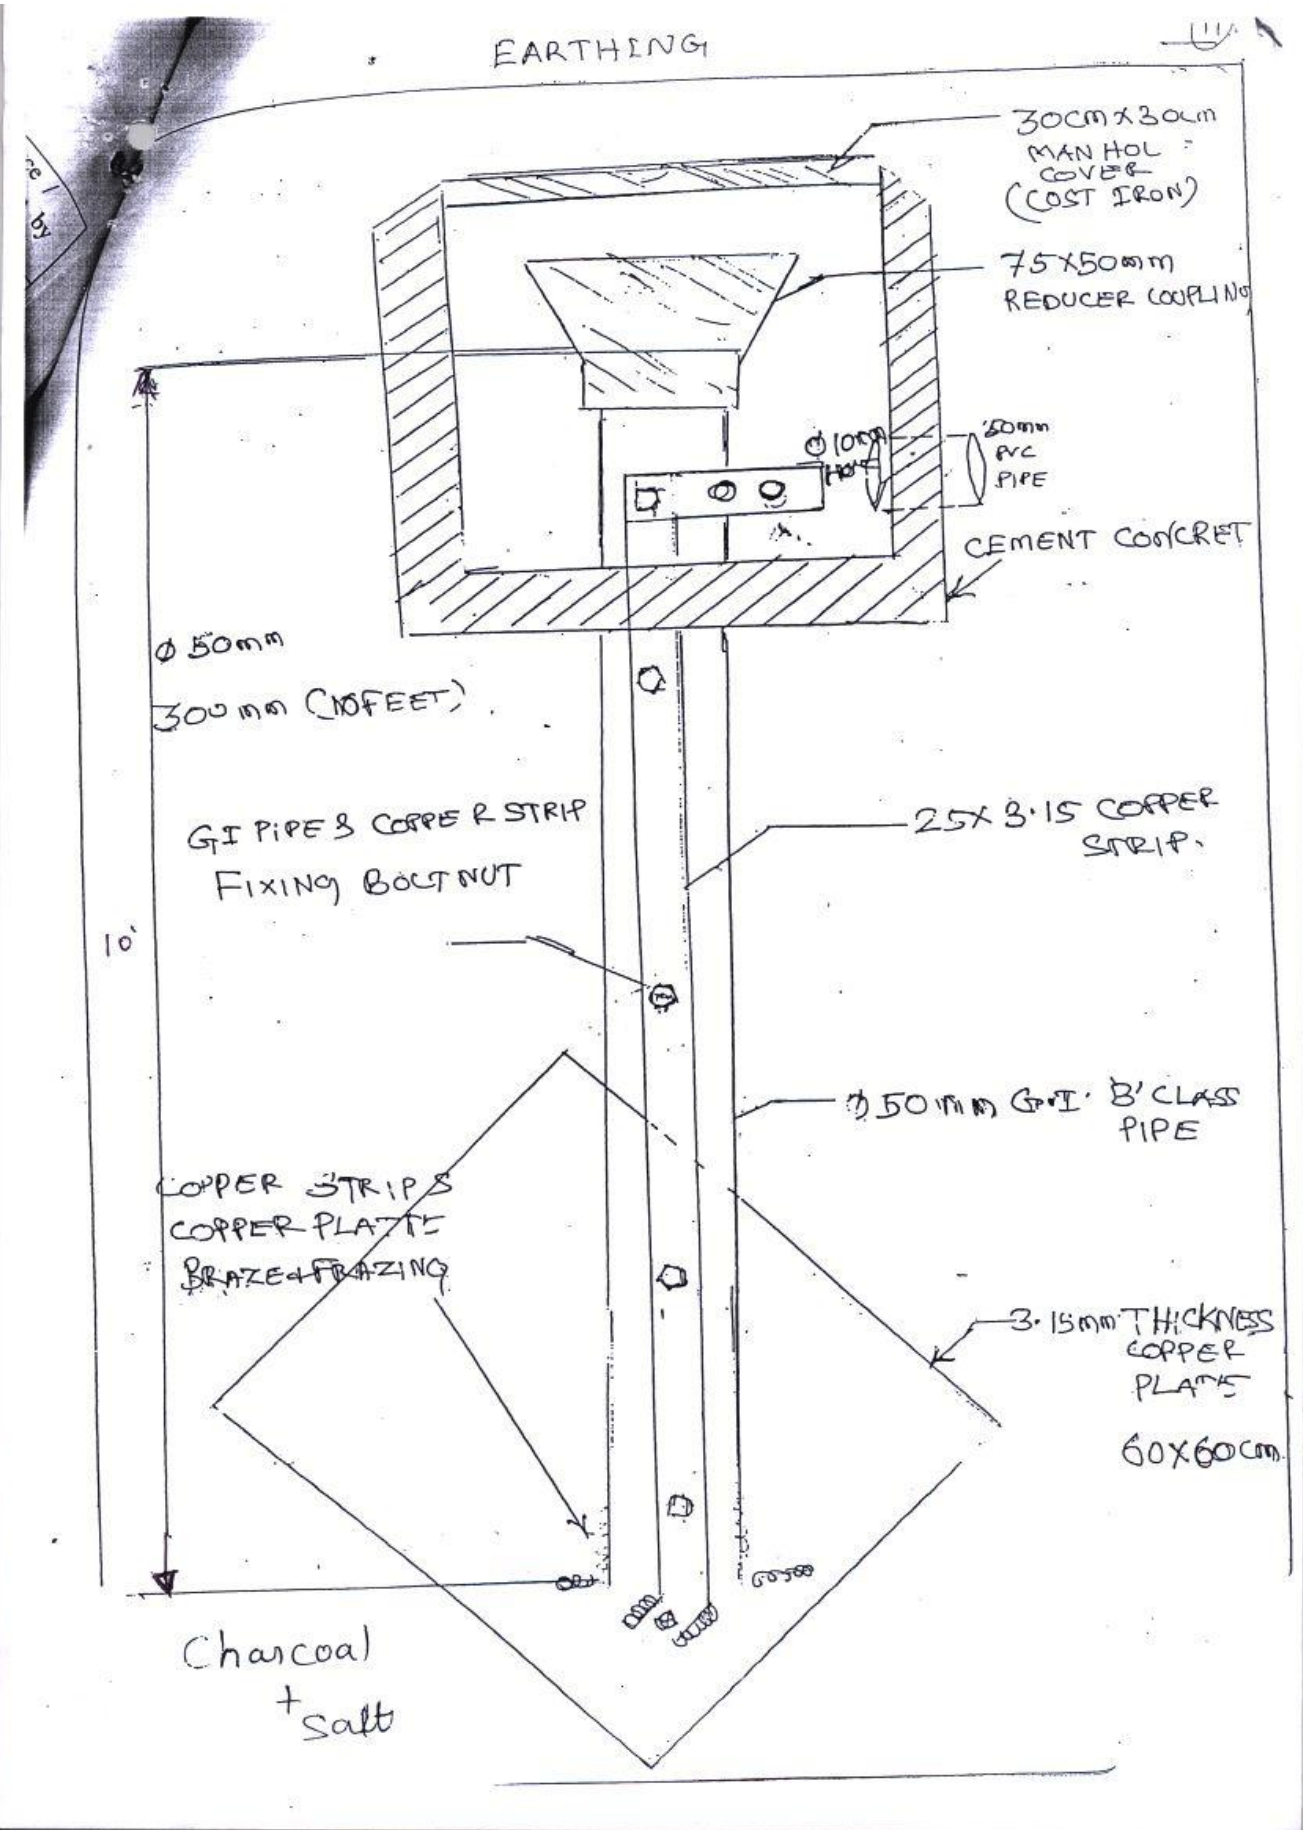 EARTHING
ce /
by
30cm X 30cm
MAN HOL
COVER
(COST IRON)
75X50mm
REDUCER COUPLING
Ø 10mm
HOL
50mm
PVC
PIPE
CEMENT CONCRET
Ø 50mm
300mm (10FEET)
GI PIPE & COPPER STRIP
FIXING BOLT NUT
25X 3.15 COPPER
STRIP.
10'
Ø 50mm G.I. B'CLASS
PIPE
COPPER STRIP &
COPPER PLATE
3.15mm THICKNESS
COPPER
PLATE
60X60cm
Charcoal
+
Salt